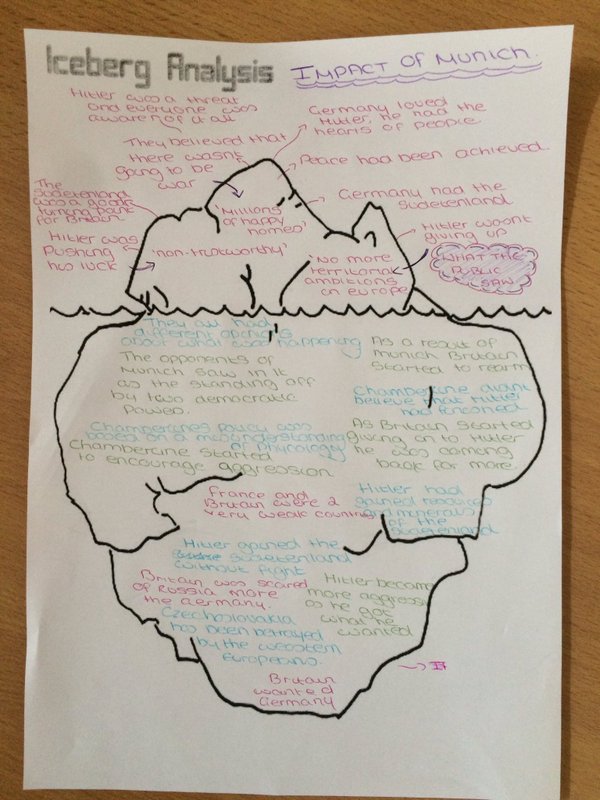 Iceberg Analysis
IMPACT OF MUNICH.
Hitler was a threat
and everyone was
aware of it all
Germany loved
Hitler, he had the
hearts of people.
They believed that
there wasnt
going to be
war
Peace had been achieved.
The
sudetenland
was a good
turning point for
Britain
Germany had the
sudetenland
'Millions
of happy
homes'
Hitler was
pushing
his luck
'non-trustworthy'
'No more
territorial
ambitions
in europe'
Hitler wasnt
giving up
WHAT THE
PUBLIC
SAW
They all had
different opinions
about what was happening
As a result of
munich Britain
started to rearm
The opponents of
Munich saw in it
as the standing off
by two democratic
powers.
Chamberline didnt
believe that Hitler
had
Chamberlines policy was
based on a misunderstanding
of phycology
Chamberline started
to encourage aggression
As Britain started
giving on to Hitler
he was coming
back for more.
France and
Britain were 2
very weak countries
Hitler had
gained resources
and minerals
of the
sudetenland
Hitler gained the
sudetenland
without fight
Britain was scared
of Russia more
the Germany.
Hitler became
more aggressi
as he got
what he
wanted
Czechoslovakia
has been betrayed
by the western
Europeans.
Britain
wanted
Germany